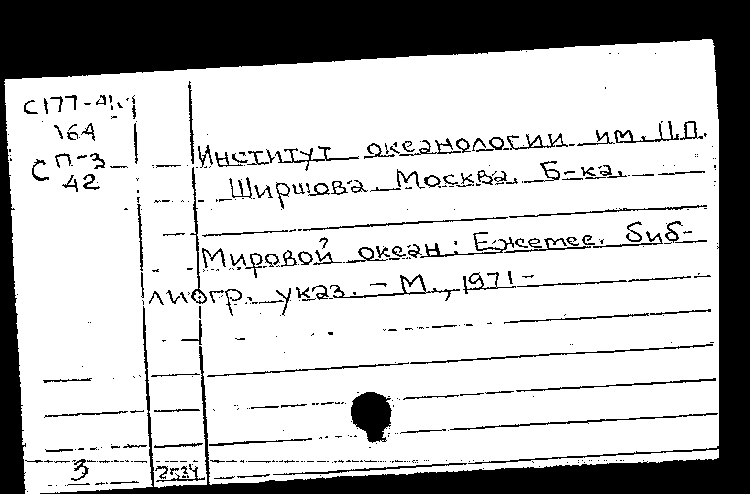 С177-4
164
С П-3
42
Институт океанологии им. П.П.
Ширшова. Москва. Б-ка.
Мировой океан: Ежемес. биб-
лиогр. указ. - М., 1971-
3
2534